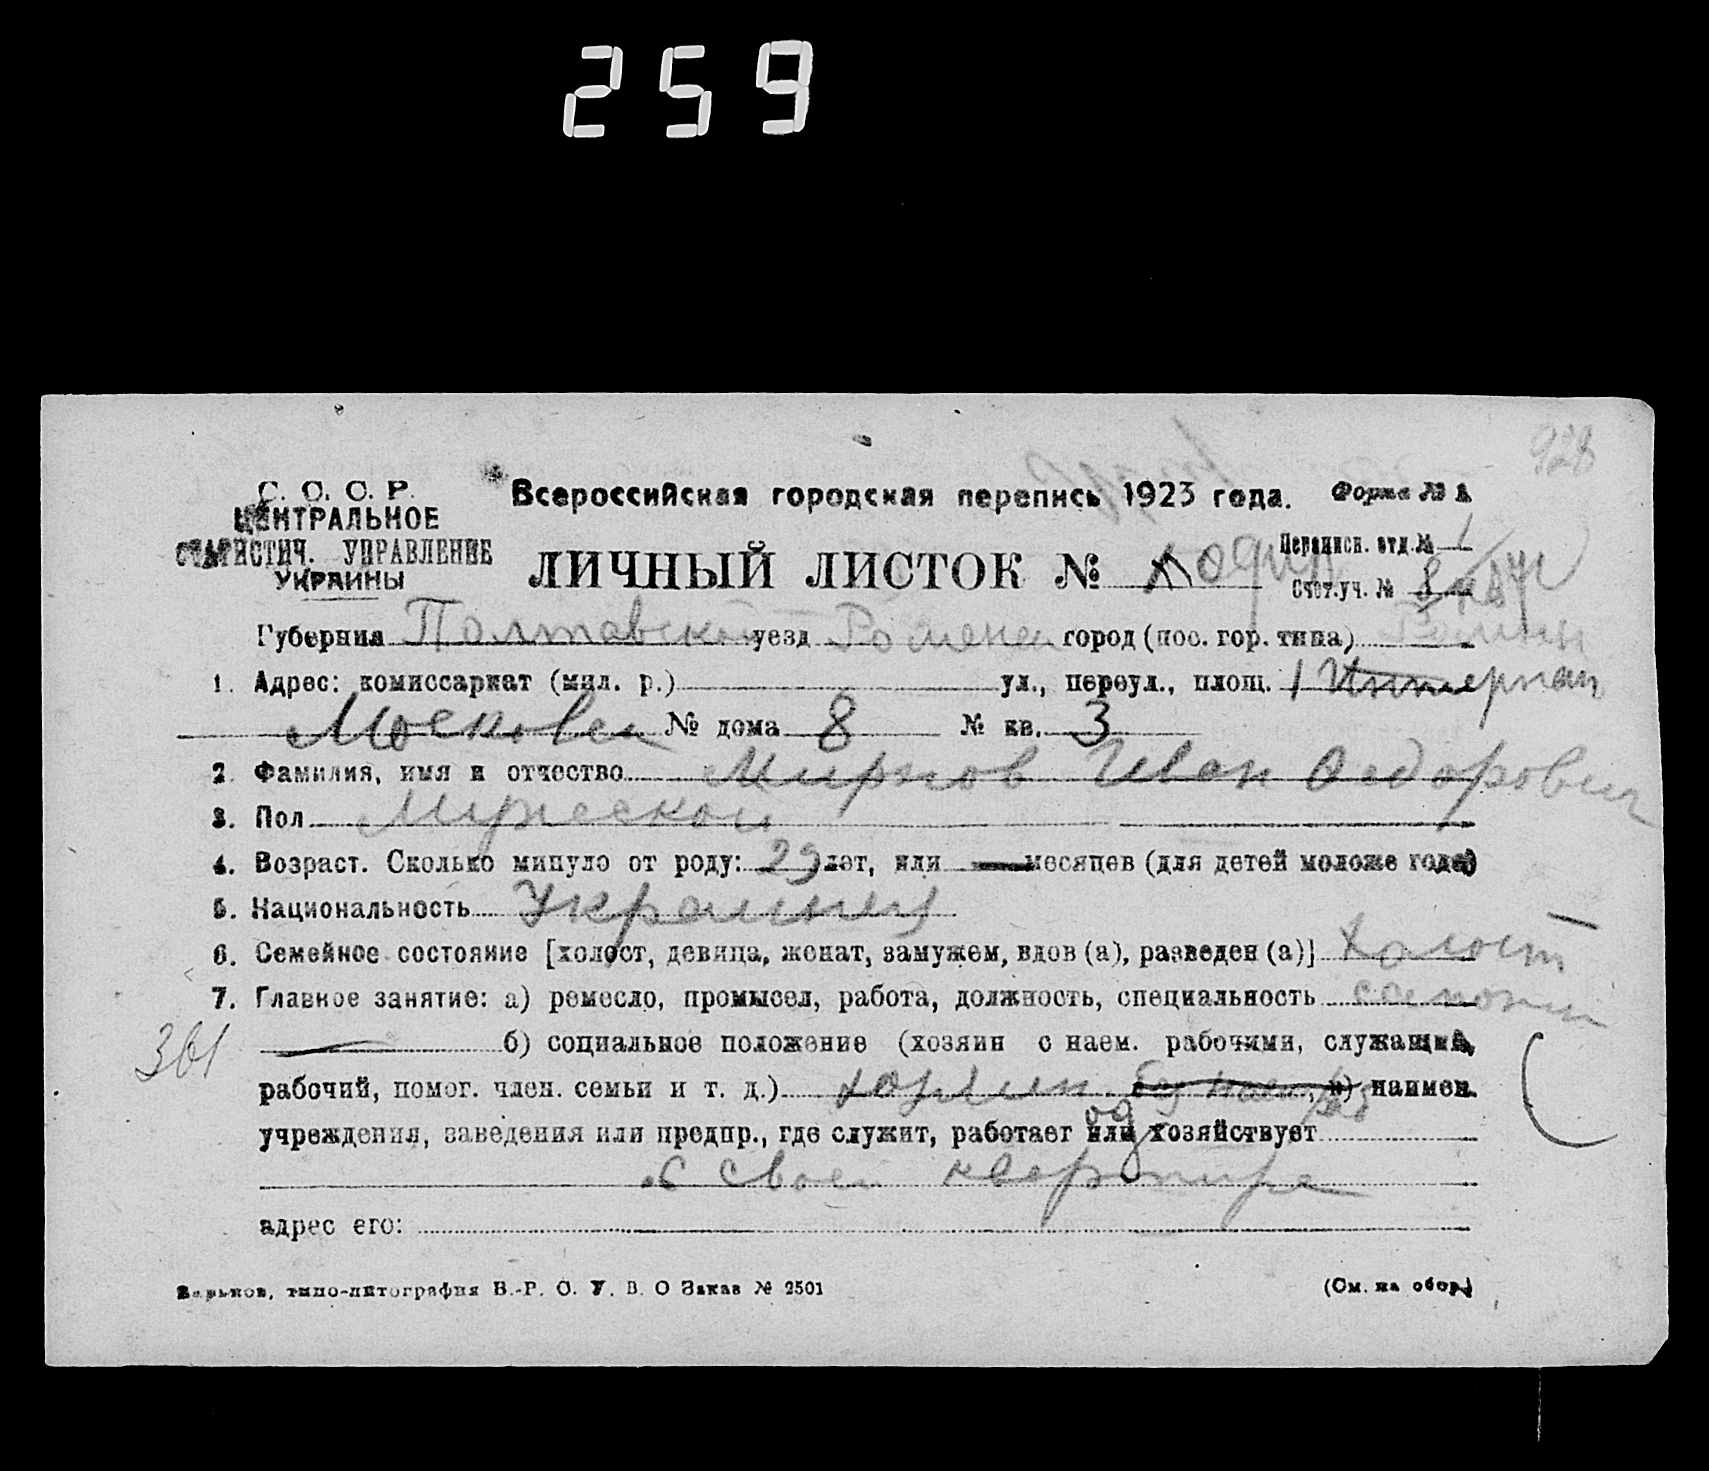 259
928
С. С. С. Р.
ЦЕНТРАЛЬНОЕ
СТАТИСТИЧ. УПРАВЛЕНИЕ
УКРАИНЫ
Всероссийская городская перепись 1923 года.
Форма № 1
ЛИЧНЫЙ ЛИСТОК №
Переписн. отд. № 1
Счет.уч. № 8
Губерния Полтавской уезд Роменск город (пос. гор. типа) Ромны
1. Адрес: комиссариат (мил. р.) ул., переул., площ. 1 Интернац
Московск № дома 8 № кв. 3
2 Фамилия, имя и отчество Иван Федорович
3. Пол Мужеской
4. Возраст. Сколько минуло от роду: 29 лет, или — месяцев (для детей моложе года)
5. Национальность Украинец
6. Семейное состояние [холост, девица, женат, замужем, вдов (а), разведен (а)] Холост
7. Главное занятие: а) ремесло, промысел, работа, должность, специальность сапожник
361
б) социальное положение (хозяин с наем. рабочими, служащий,
рабочий, помог. член. семьи и т. д.) хозяин без наем. раб в) наимен.
учреждения, заведения или предпр., где служит, работает или хозяйствует
в своей квартире
адрес его:
Харьков, типо-литография В.-Р. О. У. В. О Заказ № 2501
(См. на обор.)